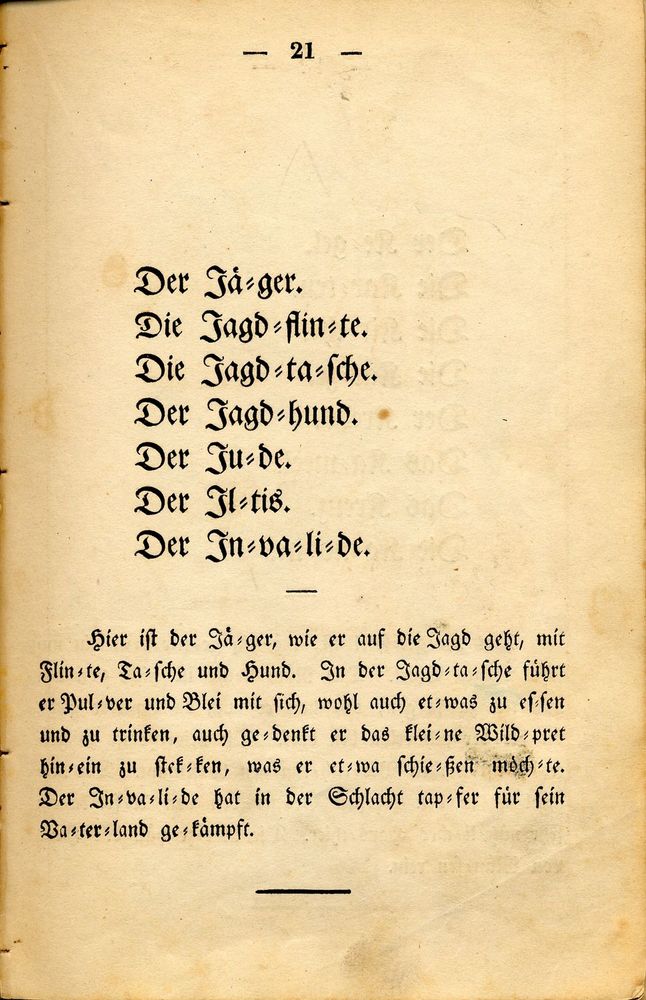 — 21 —
Der Jä⸗ger.
Die Jagd⸗flin⸗te.
Die Jagd⸗ta⸗ſche.
Der Jagd⸗hund.
Der Ju⸗de.
Der Il⸗tis.
Der In⸗va⸗li⸗de.
Hier iſt der Jä⸗ger, wie er auf die Jagd geht, mit
Flin⸗te, Ta⸗ſche und Hund. In der Jagd⸗ta⸗ſche führt
er Pul⸗ver und Blei mit ſich, wohl auch et⸗was zu eſ⸗ſen
und zu trinken, auch ge⸗denkt er das klei⸗ne Wild⸗pret
hin⸗ein zu ſtek⸗ken, was er et⸗wa ſchie⸗ßen möch⸗te.
Der In⸗va⸗li⸗de hat in der Schlacht tap⸗fer für ſein
Va⸗ter⸗land ge⸗kämpft.